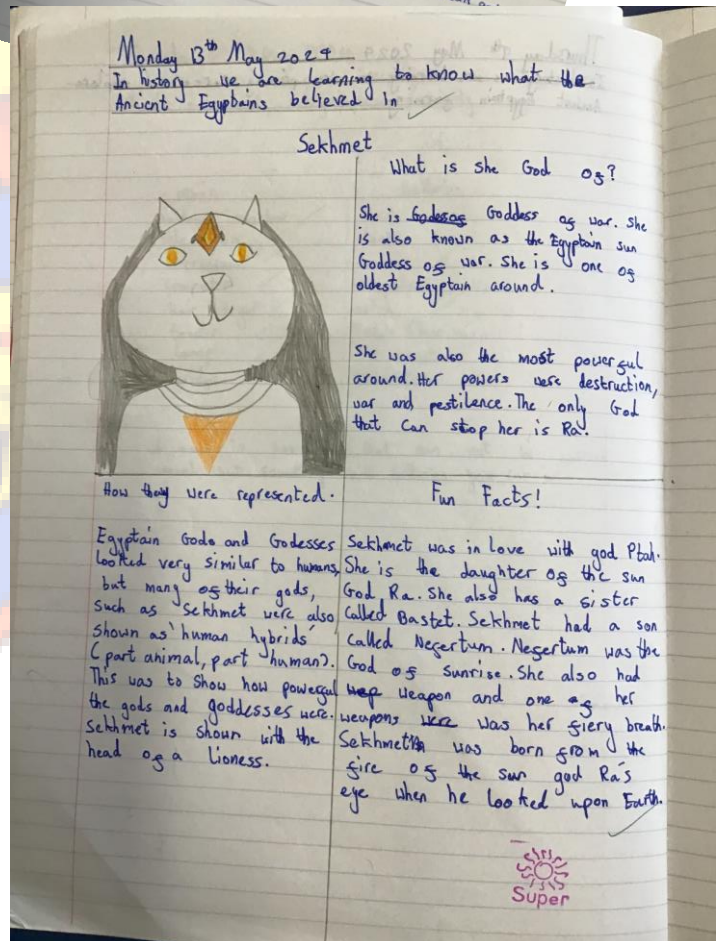 Monday 13th May 2024
In history we are learning to know what the
Ancient Egyptains believed in
Sekhmet
What is She God of?
She is Godesof Goddess of war. She
is also known as the Egyptain sun
Goddess of war. She is one of
oldest Egyptain around.
She was also the most powerful
around. Her powers were destruction,
war and pestilence. The only God
that can stop her is Ra.
How they were represented.
Egyptain Gods and Godesses
looked very similar to humans,
but many of their gods,
such as Sekhmet were also
shown as 'human hybrids'
(part animal, part human).
This was to show how powerful
the gods and goddesses were.
Sekhmet is shown with the
head of a Lioness.
Fun Facts!
Sekhmet was in love with god Ptah.
She is the daughter of the sun
God Ra. She also has a sister
called Bastet. Sekhmet had a son
called Nefertum. Nefertum was the
God of sunrise. She also had
wep weapon and one of her
weapons were was her fiery breath.
Sekhmet was born from the
fire of the sun god Ra's
eye when he looked upon Earth.
Super